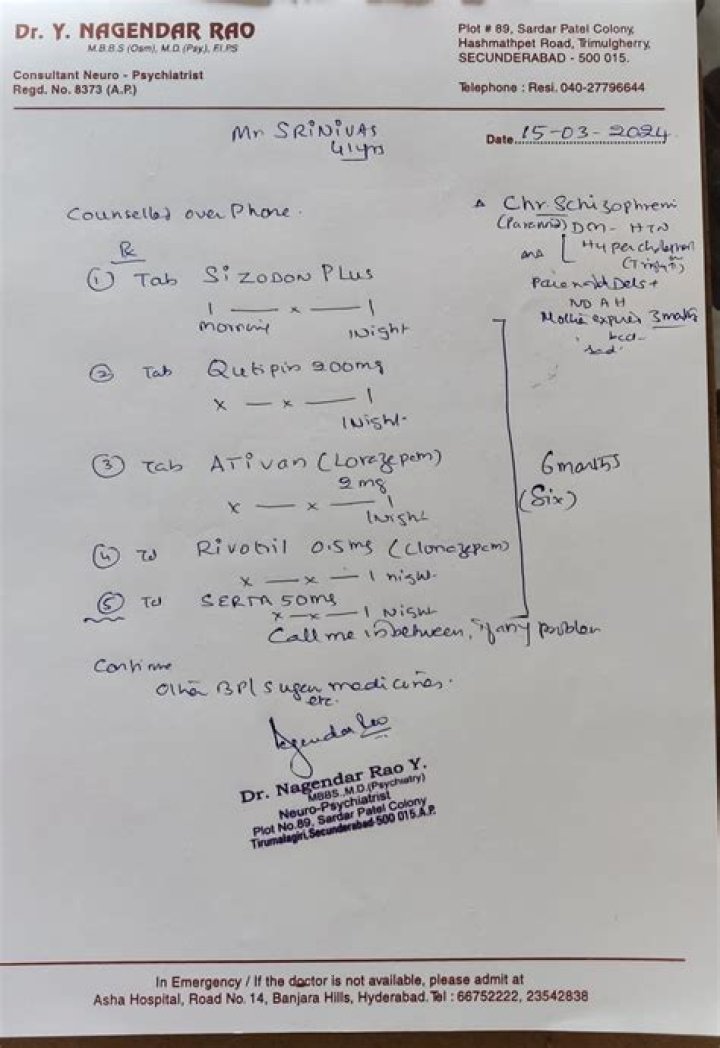 Dr. Y. NAGENDAR RAO
M.B.B.S (Osm), M.D. (Psy.), F.I.P.S
Consultant Neuro - Psychiatrist
Regd. No. 8373 (A.P.)
Plot # 89, Sardar Patel Colony,
Hashmathpet Road, Trimulgherry,
SECUNDERABAD - 500 015.
Telephone : Resi. 040-27796644
Mr SRINIVAS
41yrs
Date 15-03-2024
Counselled over Phone.
Δ Chr. Schizophreni
(Paranoid) DM - HTN
Hypercholestrol
Paranoid Dels +
NO AH
expired 3 months
sad
Rx
① Tab SIZODON PLUS
1 — x — 1
morning Night
② Tab Qutipin 200mg
x — x — 1
Night
③ Tab ATivan (Lorazepam)
2 mg
x — x — 1
Night
6 months
(Six)
④ Td Rivotril 0.5mg (Clonazepam)
x — x — 1 night
⑤ Td SERTA 50mg
x — x — 1 Night
Call me in between, if any problem
Continue
Other BP/Sugar medicines.
etc.
Nagendar Rao
Dr. Nagendar Rao Y.
MBBS.,M.D.(Psychiatry)
Neuro-Psychiatrist
Plot No.89, Sardar Patel Colony
Tirumalagiri,Secunderabad-500 015.A.P.
In Emergency / If the doctor is not available, please admit at
Asha Hospital, Road No. 14, Banjara Hills, Hyderabad. Tel : 66752222, 23542838